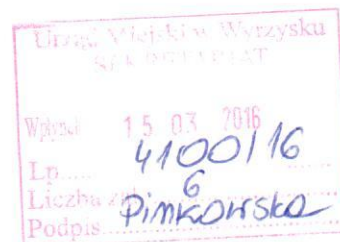 Urząd Miejski w Wyrzysku
SEKRETARIAT
Wpłynęł 15 03 2016
Lp..... 4100/16
Liczba 6
Podpis Pimkowska